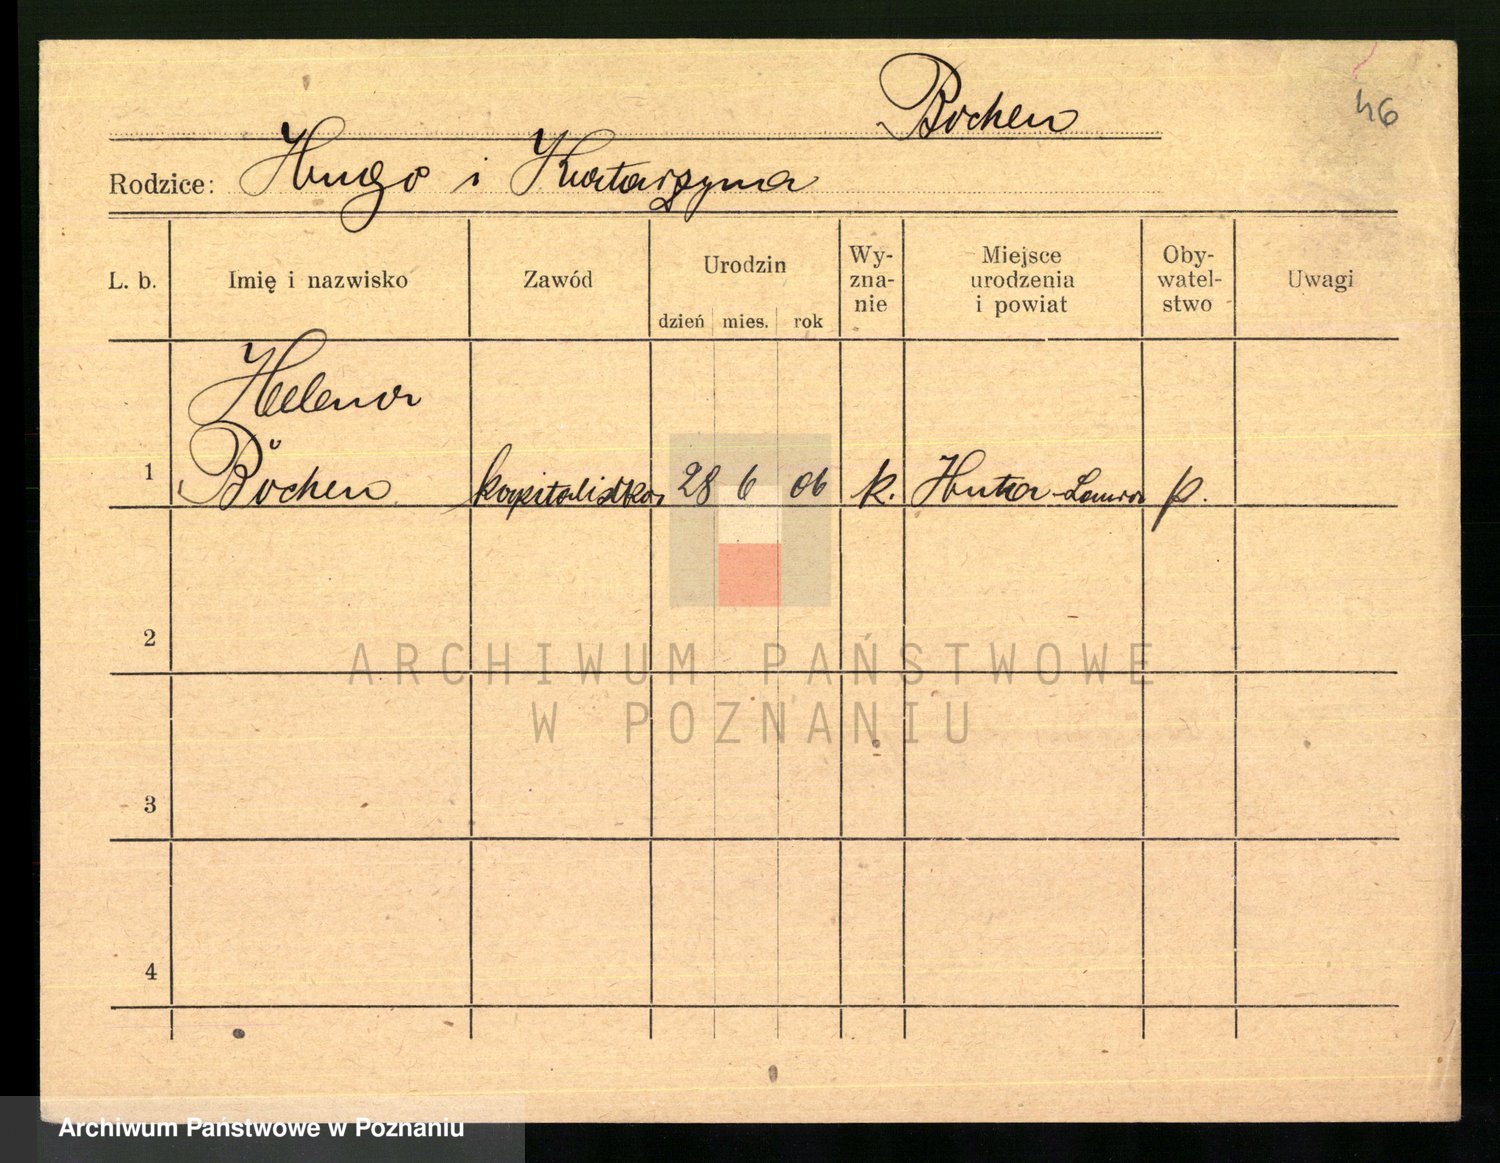 Bochen
46
Rodzice: Hugo i Katarzyna
L. b. Imię i nazwisko Zawód Urodzin dzień mies. rok Wy-zna-nie Miejsce urodzenia i powiat Oby-watel-stwo Uwagi
Helena
1 Böchen kapitalistka 28 6 06 k. Huta-Laura p.
2
ARCHIWUM PAŃSTWOWE
W POZNANIU
3
4
Archiwum Państwowe w Poznaniu